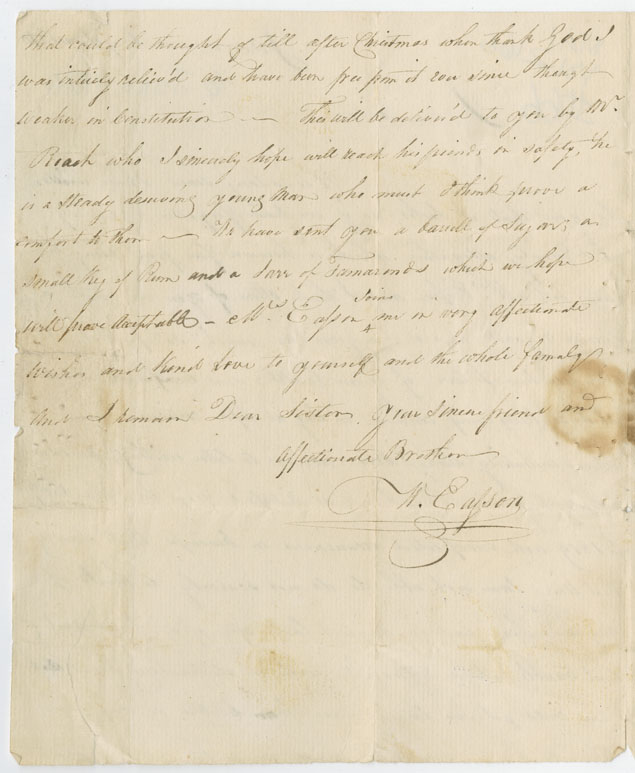 that could be thought of till after Christmas when thank God I
was intirely reliev'd and have been free from it ever since though
weaker in Constitution — This will be deliver'd to you by Mr.
Reach who I sincerely hope will reach his friends in safety, he
is a steady deserving young Man who must I think prove a
comfort to them — We have sent you a barrell of Sugar, a
small Keg of Rum and a Jarr of Tamarends which we hope
will prove acceptable — Mrs. Easson Joins me in very affectionate
wishes and kind Love to yourself and the whole family
And I remain Dear Sister, your sincere friend and
affectionate Brother
W. Easson